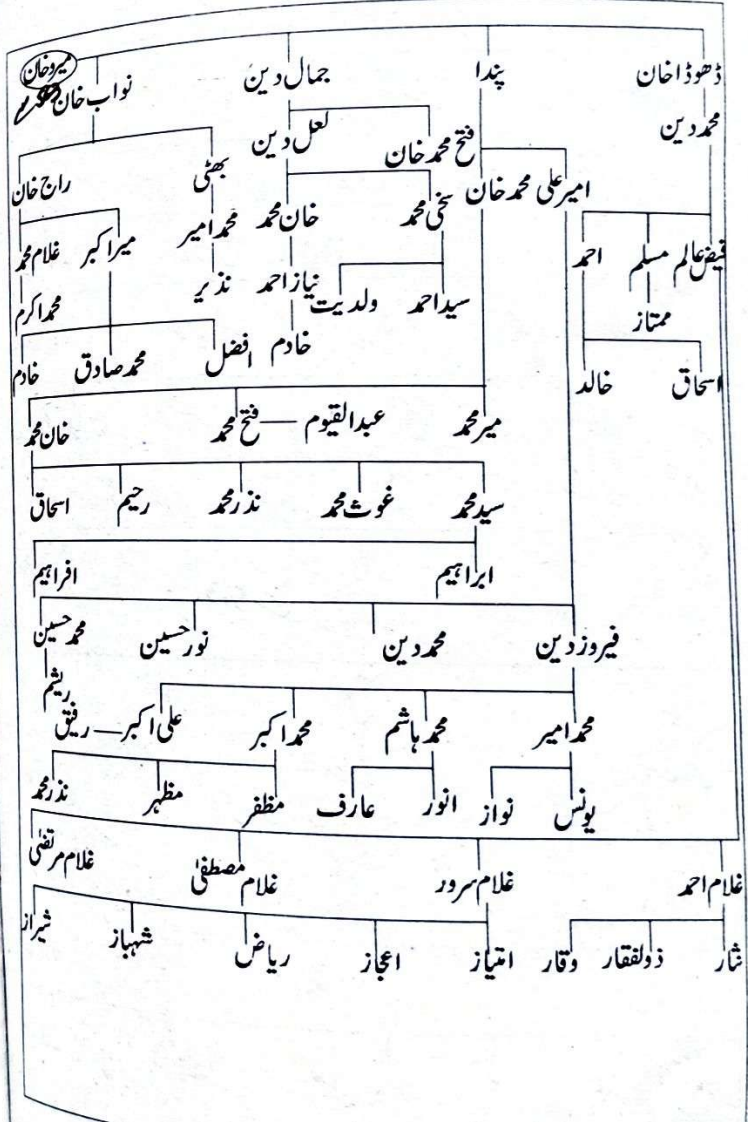 ڈھوڈاخان پندا جمال دین نواب خان میروخان
محمد دین فتح محمد خان لعل دین
امیر علی محمد خان بھٹی راج خان
فیض عالم مسلم احمد سخی محمد خان محمد محمد امیر میر اکبر غلام محمد
ممتاز سید احمد ولدیت نیاز احمد نذیر محمد اکرم
اسحاق خالد خادم افضل محمد صادق خادم
میر محمد عبدالقیوم — فتح محمد خان محمد
سید محمد غوث محمد نذر محمد رحیم اسحاق
ابراہیم افراہیم
فیروز دین محمد دین نور حسین محمد حسین
ریشم
محمد امیر محمد ہاشم محمد اکبر علی اکبر — رفیق
یونس نواز انور عارف مظفر مظہر نذر محمد
غلام احمد غلام سرور غلام مصطفیٰ غلام مرتضیٰ
نثار ذولفقار وقار امتیاز اعجاز ریاض شہباز شیراز